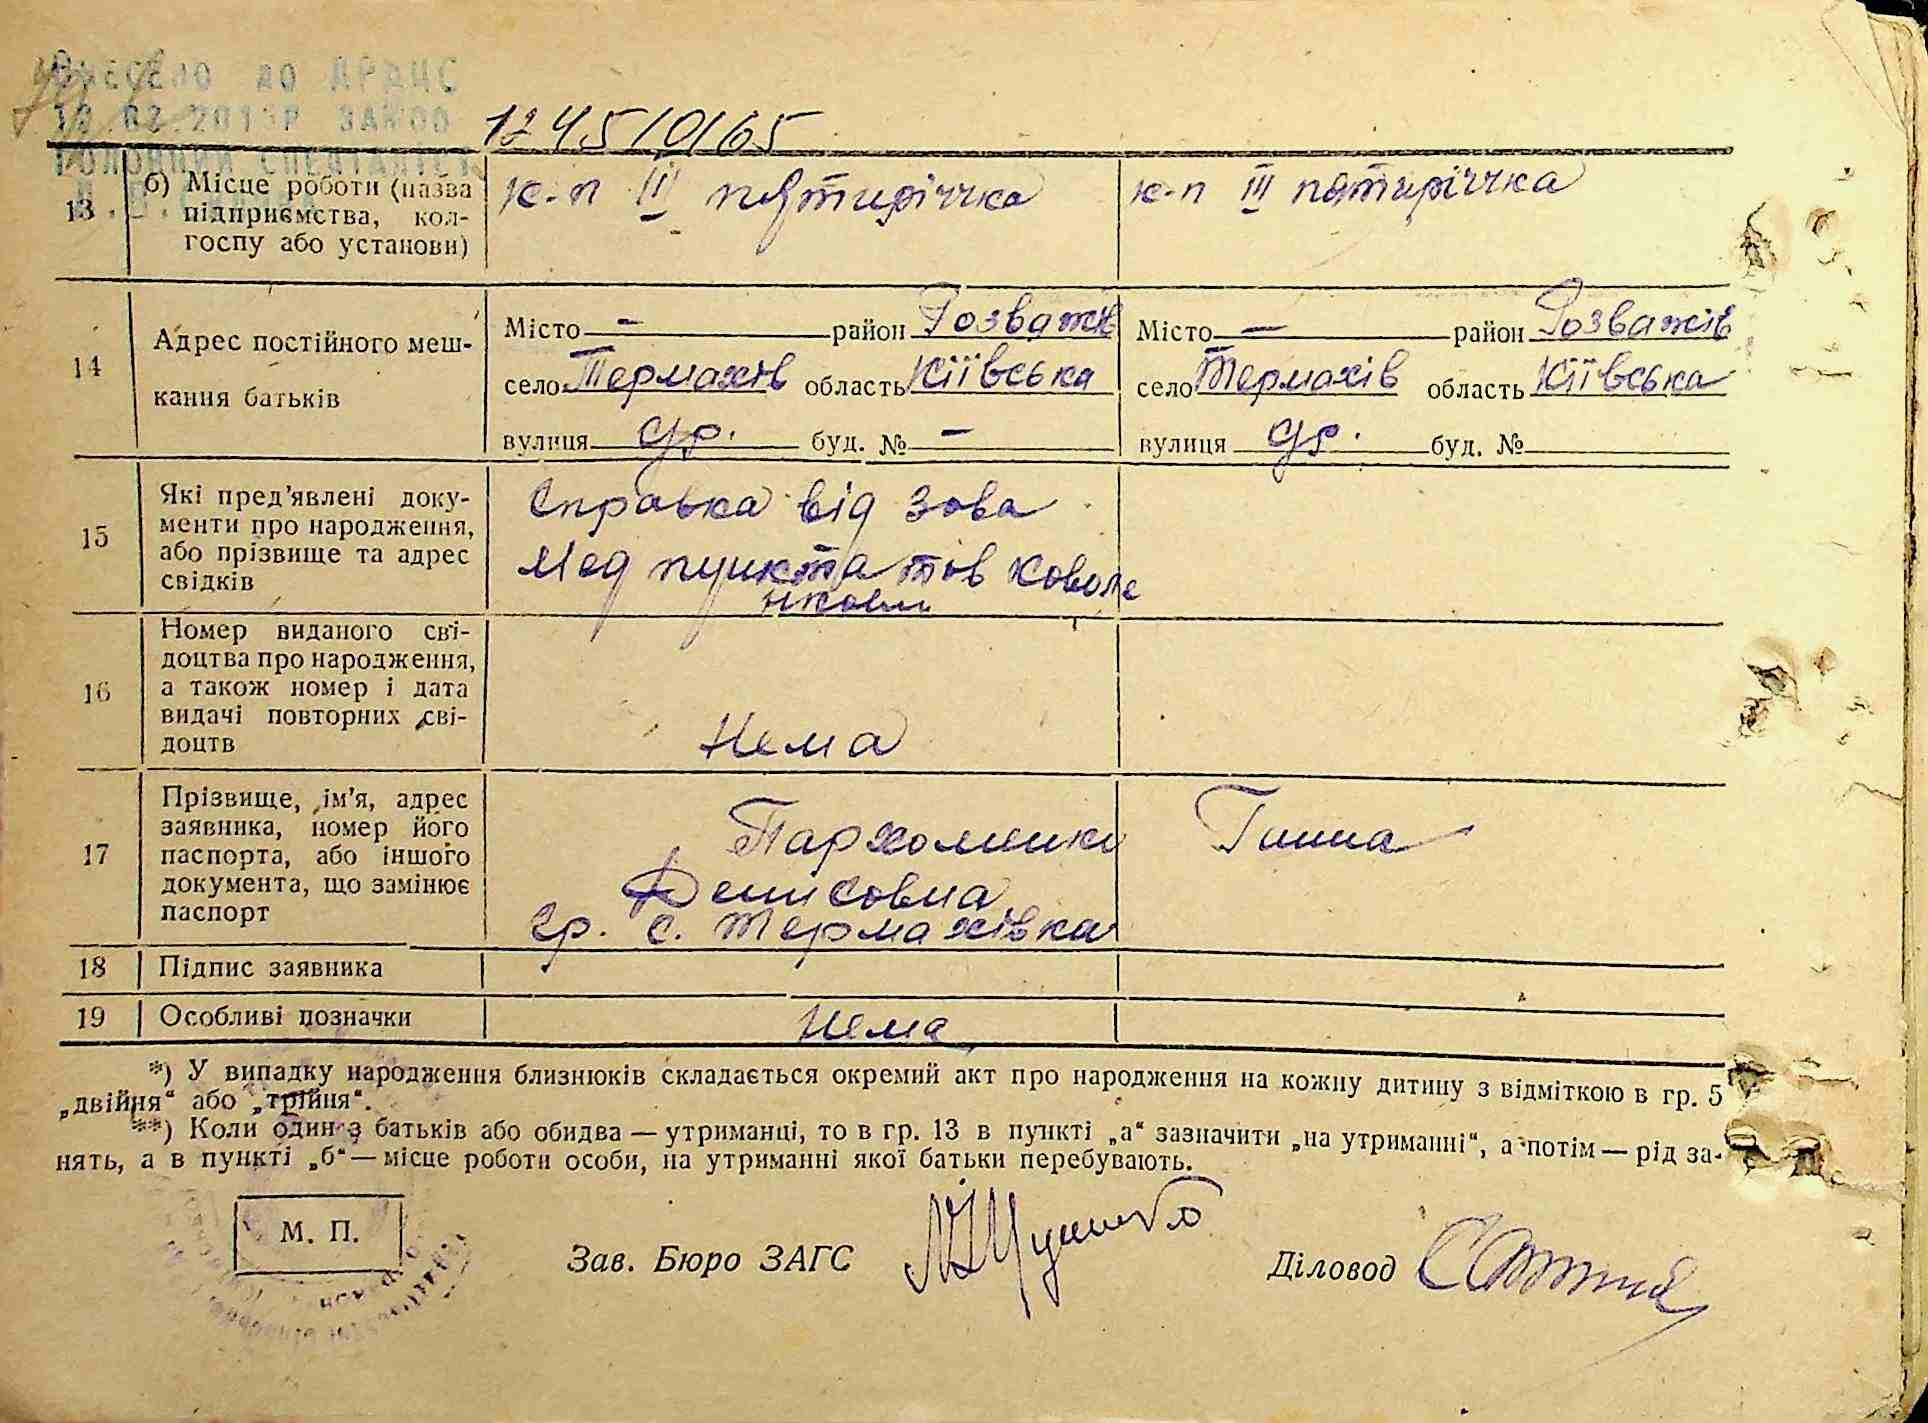 ВНЕСЕНО ДО ДРАЦС
ГОЛОВНИЙ СПЕЦІАЛІСТ
124510165
13
б) Місце роботи (назва
підприємства, кол-
госпу або установи)
к-п ІІІ пятирічка
к-п ІІІ пятирічка
14
Адрес постійного меш-
кання батьків
Місто — район Розважів
село Термахів область Кіївська
вулиця др. буд. № —
Місто — район Розважів
село Термахів область Кіївська
вулиця др. буд. №
15
Які пред’явлені доку-
менти про народження,
або прізвище та адрес
свідків
Справка від зова
Мед пункта тов Ковале
нкови
16
Номер виданого сві-
доцтва про народження,
а також номер і дата
видачі повторних сві-
доцтв
Нема
17
Прізвище, ім’я, адрес
заявника, номер його
паспорта, або іншого
документа, що замінює
паспорт
Пархоменко Ганна
Денисовна
гр. с. Термахівка
18
Підпис заявника
19
Особливі позначки
Нема
*) У випадку народження близнюків складається окремий акт про народження на кожну дитину з відміткою в гр. 5
„двійня“ або „трійня“.
**) Коли один з батьків або обидва — утриманці, то в гр. 13 в пункті „а“ зазначити „на утриманні“, а потім — рід за-
нять, а в пункті „б“ — місце роботи особи, на утриманні якої батьки перебувають.
М. П.
Зав. Бюро ЗАГС
Діловод